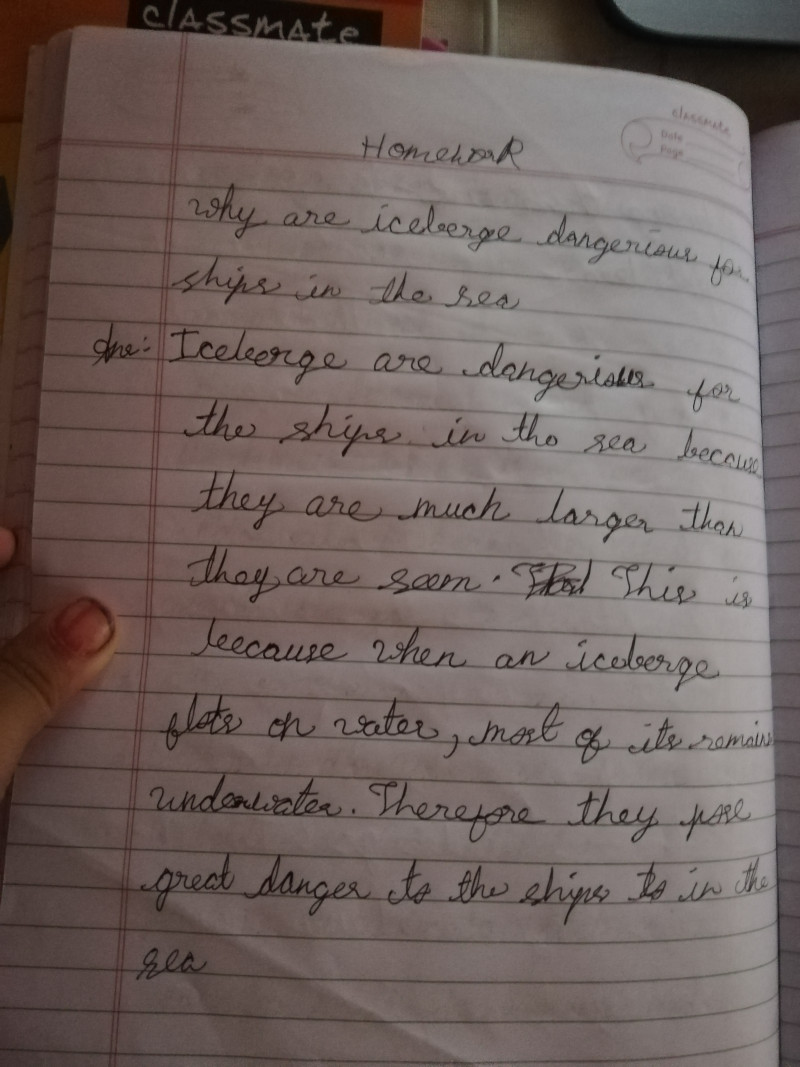 classmate
classmate
Date
Page
Homework
why are iceberge dangerious for
ships in the sea
Ans:- Iceberge are dangerious for
the ships in the sea because
they are much larger than
they are seem. This is
because when an iceberge
flots on water, most of its remains
underwater. Therefore they pose
great danger to the ships to in the
sea